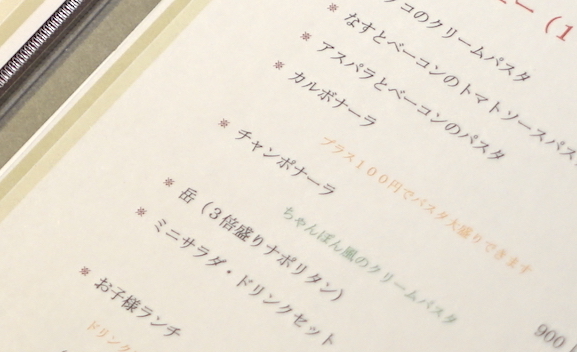 ー（1
コのクリームパスタ
※ なすとベーコンのトマトソースパス
※ アスパラとベーコンのパスタ
※ カルボナーラ
プラス１００円でパスタ大盛りできます
※ チャンポナーラ
ちゃんぽん風のクリームパスタ
※ 岳（３倍盛りナポリタン）
※ ミニサラダ・ドリンクセット
900
※ お子様ランチ
ドリンク